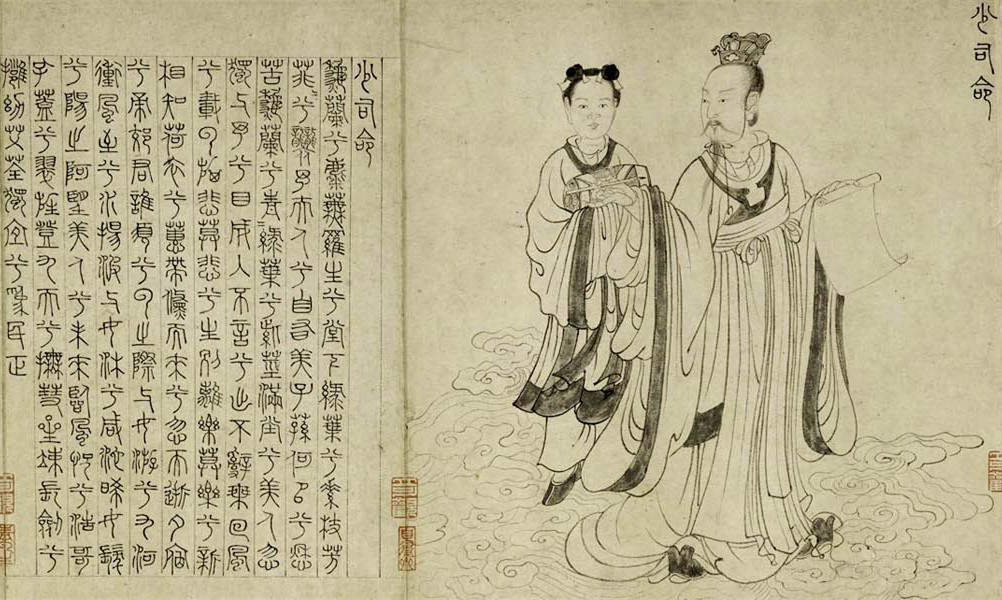 少司命
少司命
秋蘭兮麋蕪羅生兮堂下綠葉兮素枝芳
菲〻兮襲予夫人兮自有美子蓀何以兮愁
苦秋蘭兮青〻綠葉兮紫莖滿堂兮美人忽
獨与予兮目成入不言兮出不辭乘回風
兮載云旗悲莫悲兮生別離樂莫樂兮新
相知荷衣兮蕙帶儵而來兮忽而逝夕宿
兮帝郊君誰須兮云之際与女游兮九河
衝風至兮水揚波与女沐兮咸池晞女髮
兮陽之阿望美人兮未來臨風怳兮浩哥
孔蓋兮翠旌登九天兮撫彗星竦長劍兮
擁幼艾荃獨宜兮為民正